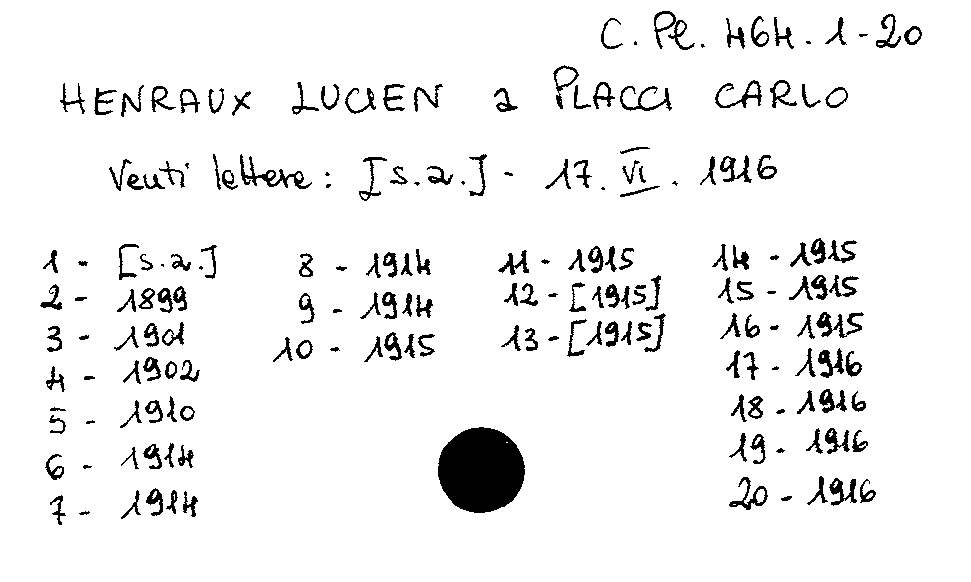 C. Pl. 464. 1-20
HENRAUX LUCIEN a PLACCI CARLO
Venti lettere: [s.a.] - 17. VI. 1916
1 - [s.a.]
2 - 1899
3 - 1901
4 - 1902
5 - 1910
6 - 1914
7 - 1914
8 - 1914
9 - 1914
10 - 1915
11 - 1915
12 - [1915]
13 - [1915]
14 - 1915
15 - 1915
16 - 1915
17 - 1916
18 - 1916
19 - 1916
20 - 1916